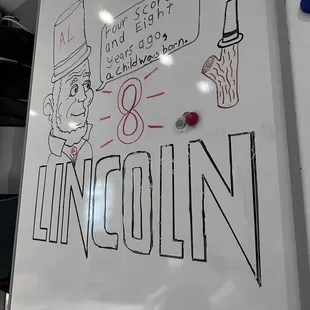 AL
Four Score
and Eight
years ago,
a child was born.
8
LINCOLN